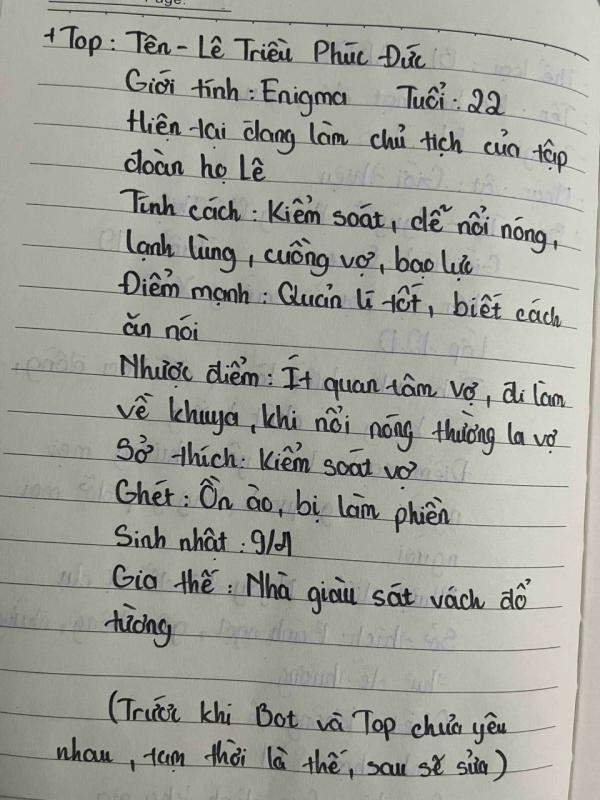 Page:
+Top: Tên - Lê Triều Phúc Đức
Giới tính: Enigma Tuổi: 22
Hiện tại đang làm chủ tịch của tập
đoàn họ Lê
Tính cách: Kiểm soát, dễ nổi nóng,
lạnh lùng, cuồng vợ, bạo lực
Điểm mạnh: Quản lí tốt, biết cách
ăn nói
Nhược điểm: Ít quan tâm vợ, đi làm
về khuya, khi nổi nóng thường la vợ
Sở thích: Kiểm soát vợ
Ghét: Ồn ào, bị làm phiền
Sinh nhật:
Gia thế: Nhà giàu sát vách đổ
tường
(Trước khi Bot và Top chưa yêu
nhau, tạm thời là thế, sau sẽ sửa)